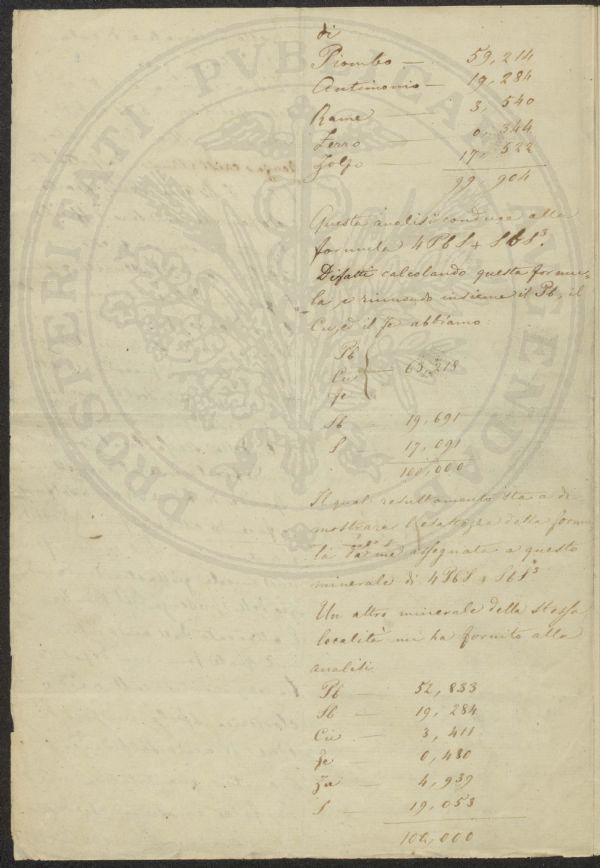 di
Piombo — 59,214
Antimonio — 19,284
Rame — 3,540
Ferro — 0,344
Zolfo — 17,522
99,904
Questa analisi conduce alla
formula 4PbS + SbS³.
Difatti calcolando questa formu-
la e riunendo insieme il Pb, il
Cu, ed il Fe abbiamo.
Pb
Cu — 63,218
Fe
Sb — 19,691
S — 17,091
100,000
Il qual resultamento sta a di
mostrare l'esatezza della formu
la assegnata a questo
minerale di 4PbS + SbS³
Un altro minerale della stessa
località mi ha fornito alla
analisi
Pb — 52,833
Sb — 19,284
Cu — 3,411
Fe — 0,480
Zn — 4,939
S — 19,053
100,000
PROSPERITATI PVBLICAE AVGENDAE